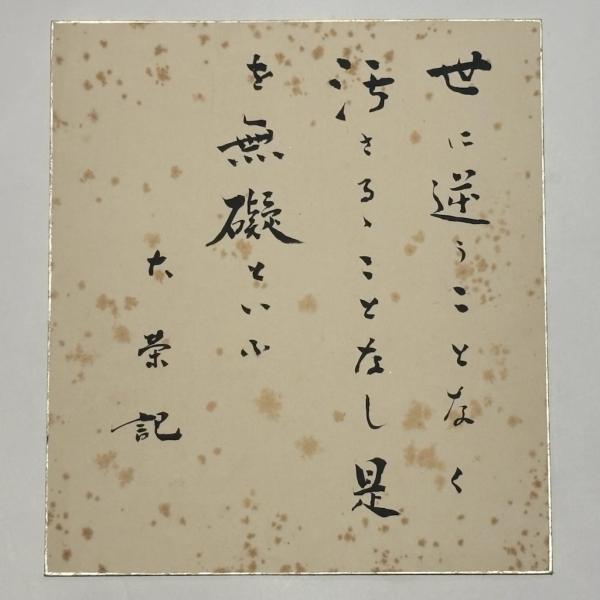 世に逆うことなく
汚さるゝことなし是
を無礙といふ
大栄記